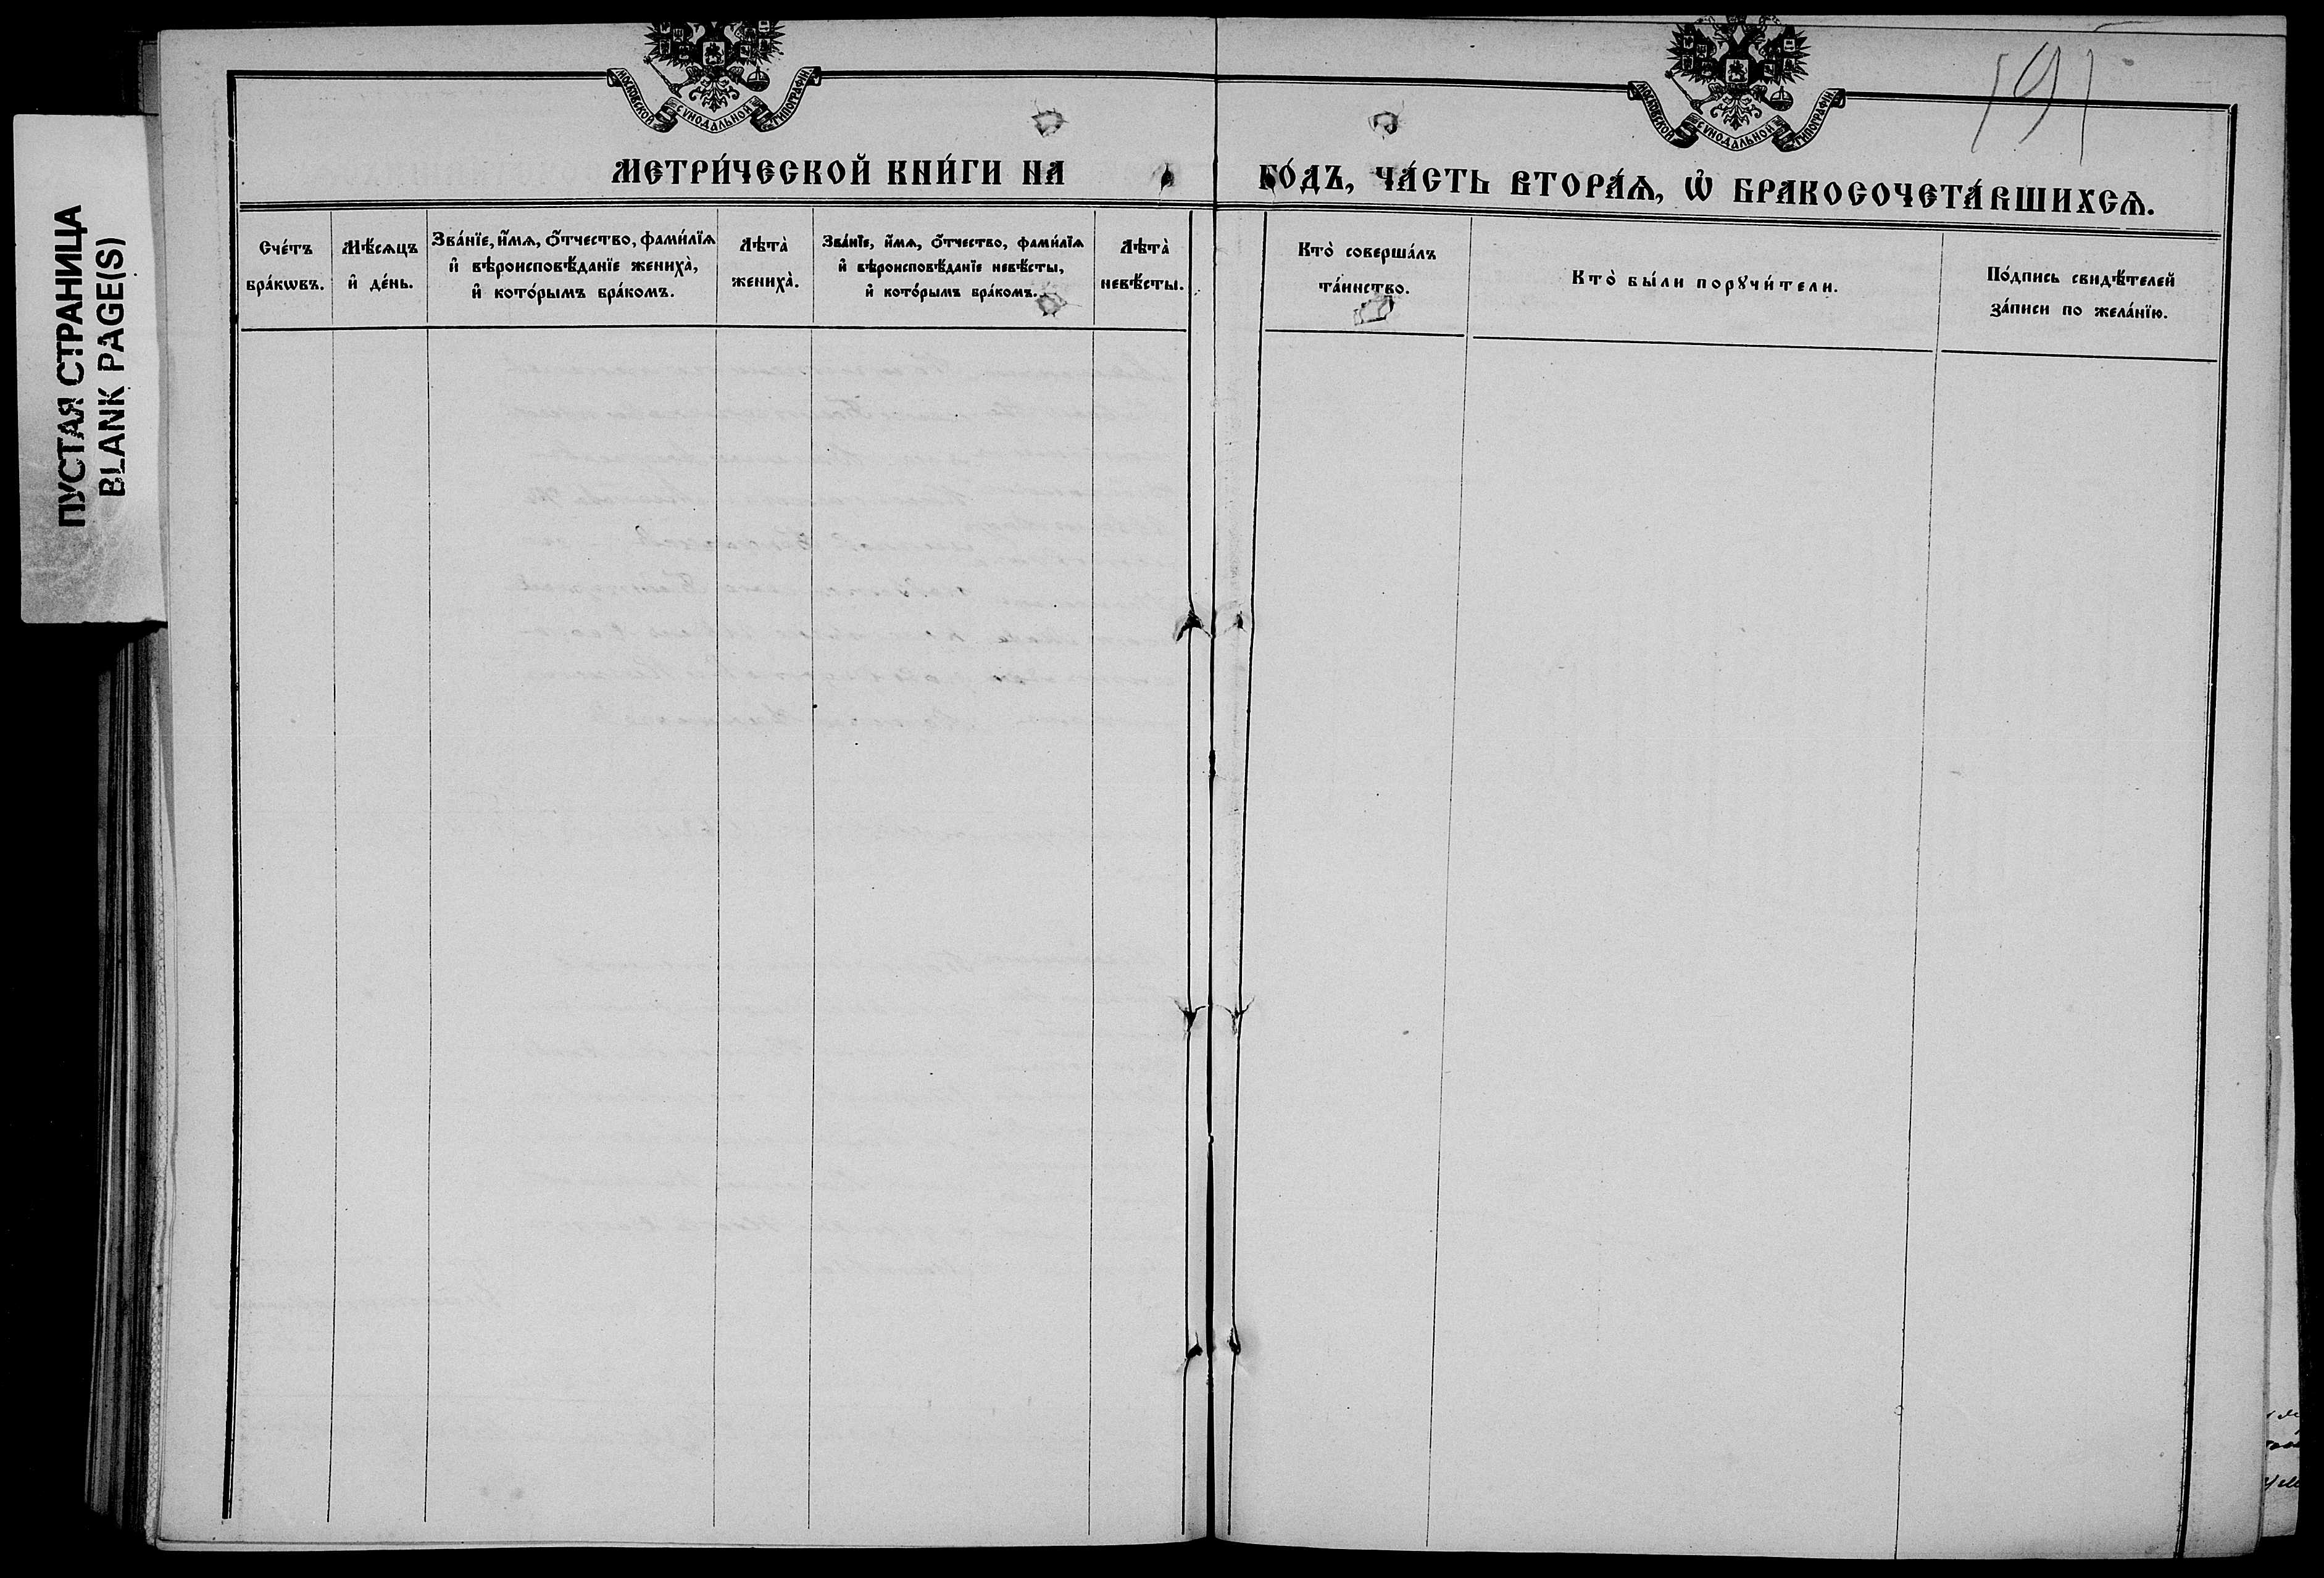 ПУСТАЯ СТРАНИЦА
BLANK PAGE(S)
МОСКОВСКОЙ СѴНОДАЛЬНОЙ ТИПОГРАФІИ
МОСКОВСКОЙ СѴНОДАЛЬНОЙ ТИПОГРАФІИ
191
МЕТРИ́ЧЕСКОЙ КНИ́ГИ НА
ГО́ДЪ, ЧА́СТЬ ВТОРА́Ѧ, Ѽ БРАКОСОЧЕТА́ВШИХСѦ.
Сче́тъ
бра́кѡвъ.
Мѣ́сѧцъ
и҆ де́нь.
Зва́нїе, и҆́мѧ, ѻ҆́тчество, фами́лїѧ
и҆ вѣроисповѣ́данїе женихà,
и҆ кото́рымъ бра́комъ.
Лѣтà
женихà.
Зва́нїе, и҆́мѧ, ѻ҆́тчество, фами́лїѧ
и҆ вѣроисповѣ́данїе невѣ́сты,
и҆ кото́рымъ бра́комъ.
Лѣтà
невѣ́сты.
Кто̀ соверша́лъ
та́инство.
Кто̀ бы́ли порꙋчи́тели.
По́дпись свидѣ́телей
за́писи по жела́нїю.